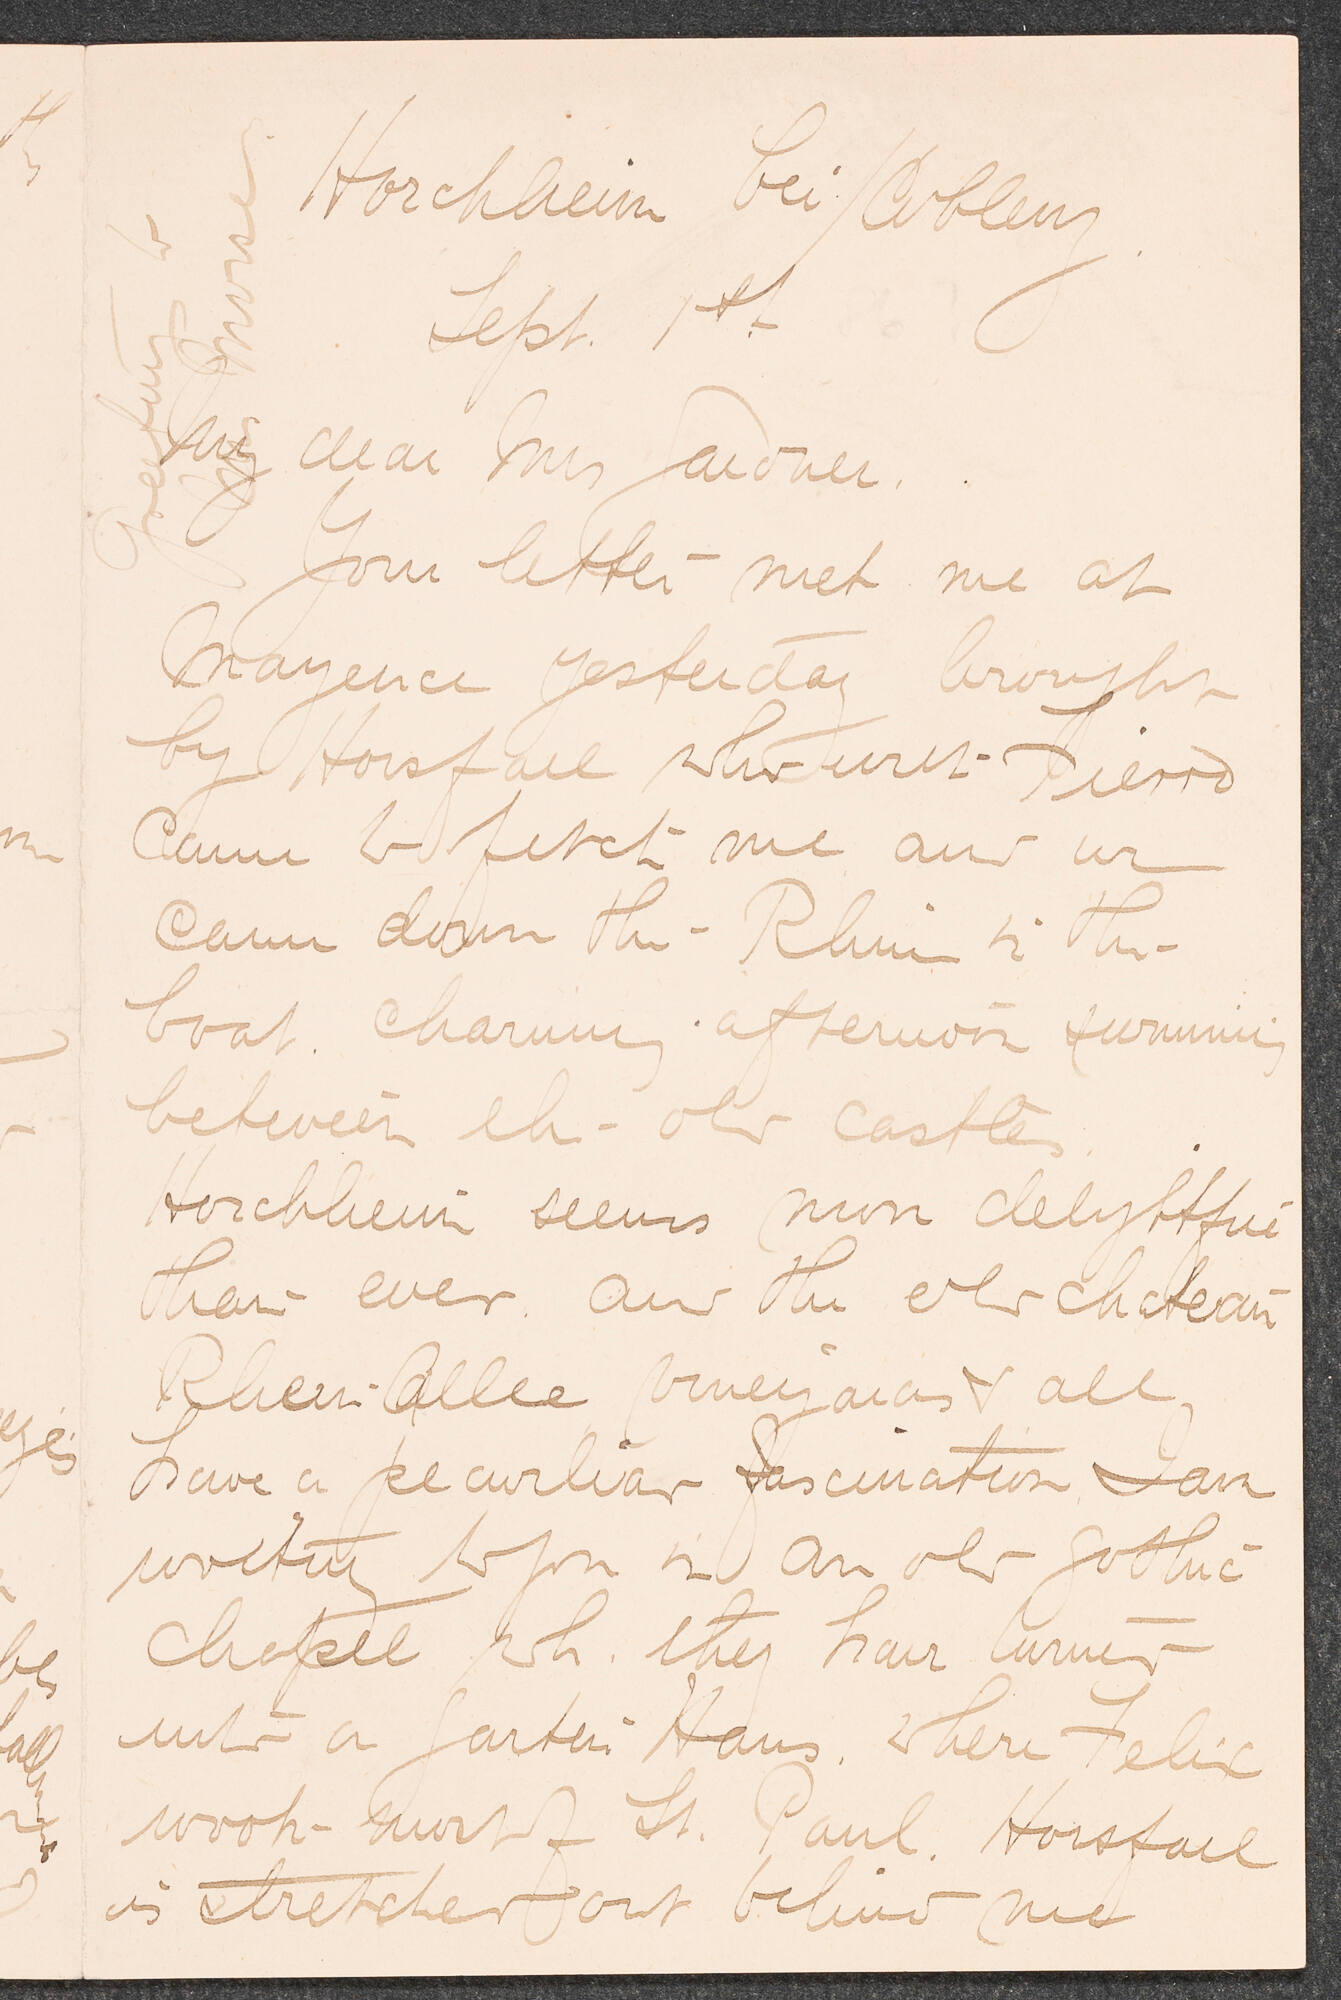 Horchheim bei Coblenz.
Sept. 1st.
My dear Mrs Gardner.
Your letter met me at
Mayence yesterday brought
by Horsfall who with Fierro
came to fetch me and we
came down the Rhine in the
boat. charming afternoon swimming
between the old castles.
Horchheim seems more delightful
than ever. and the old chateau
Rhein Allee vineyards & all
have a peculiar fascination. I am
writing to you in an old gothic
chapel wh. they have turned
into a Garten Haus. where Felix
wrote most of St. Paul. Horsfall
is stretched out behind me
Greeting to